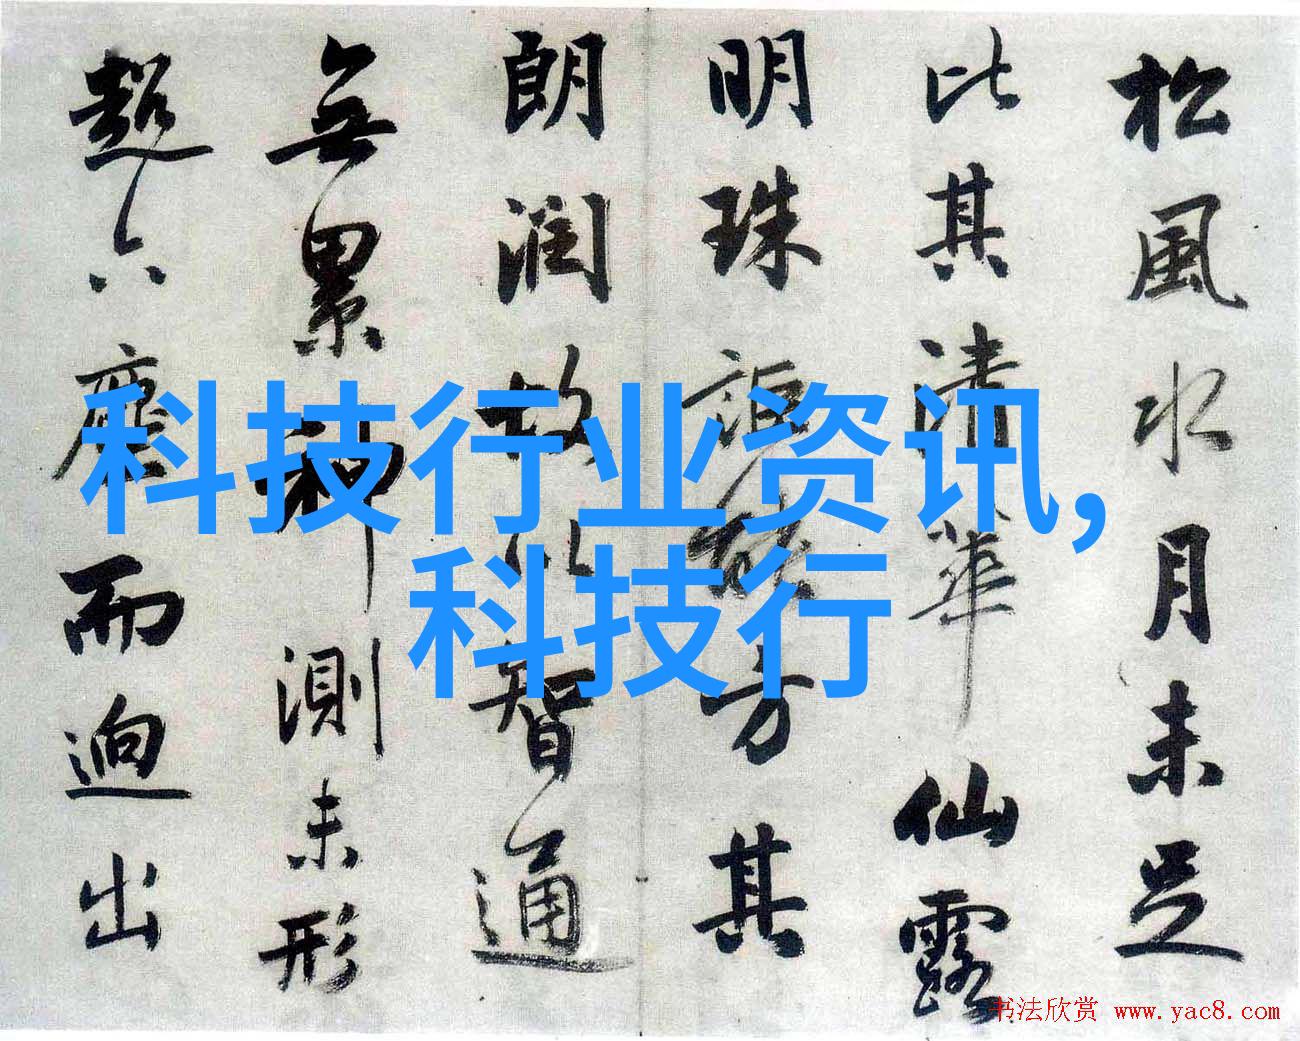 松風水月未足
比其清華仙露
明珠詎能方其
朗潤故以智通
無累神測未形
超六塵而迥出
科技行业资讯,
科技行
书法欣赏 www.yac8.com